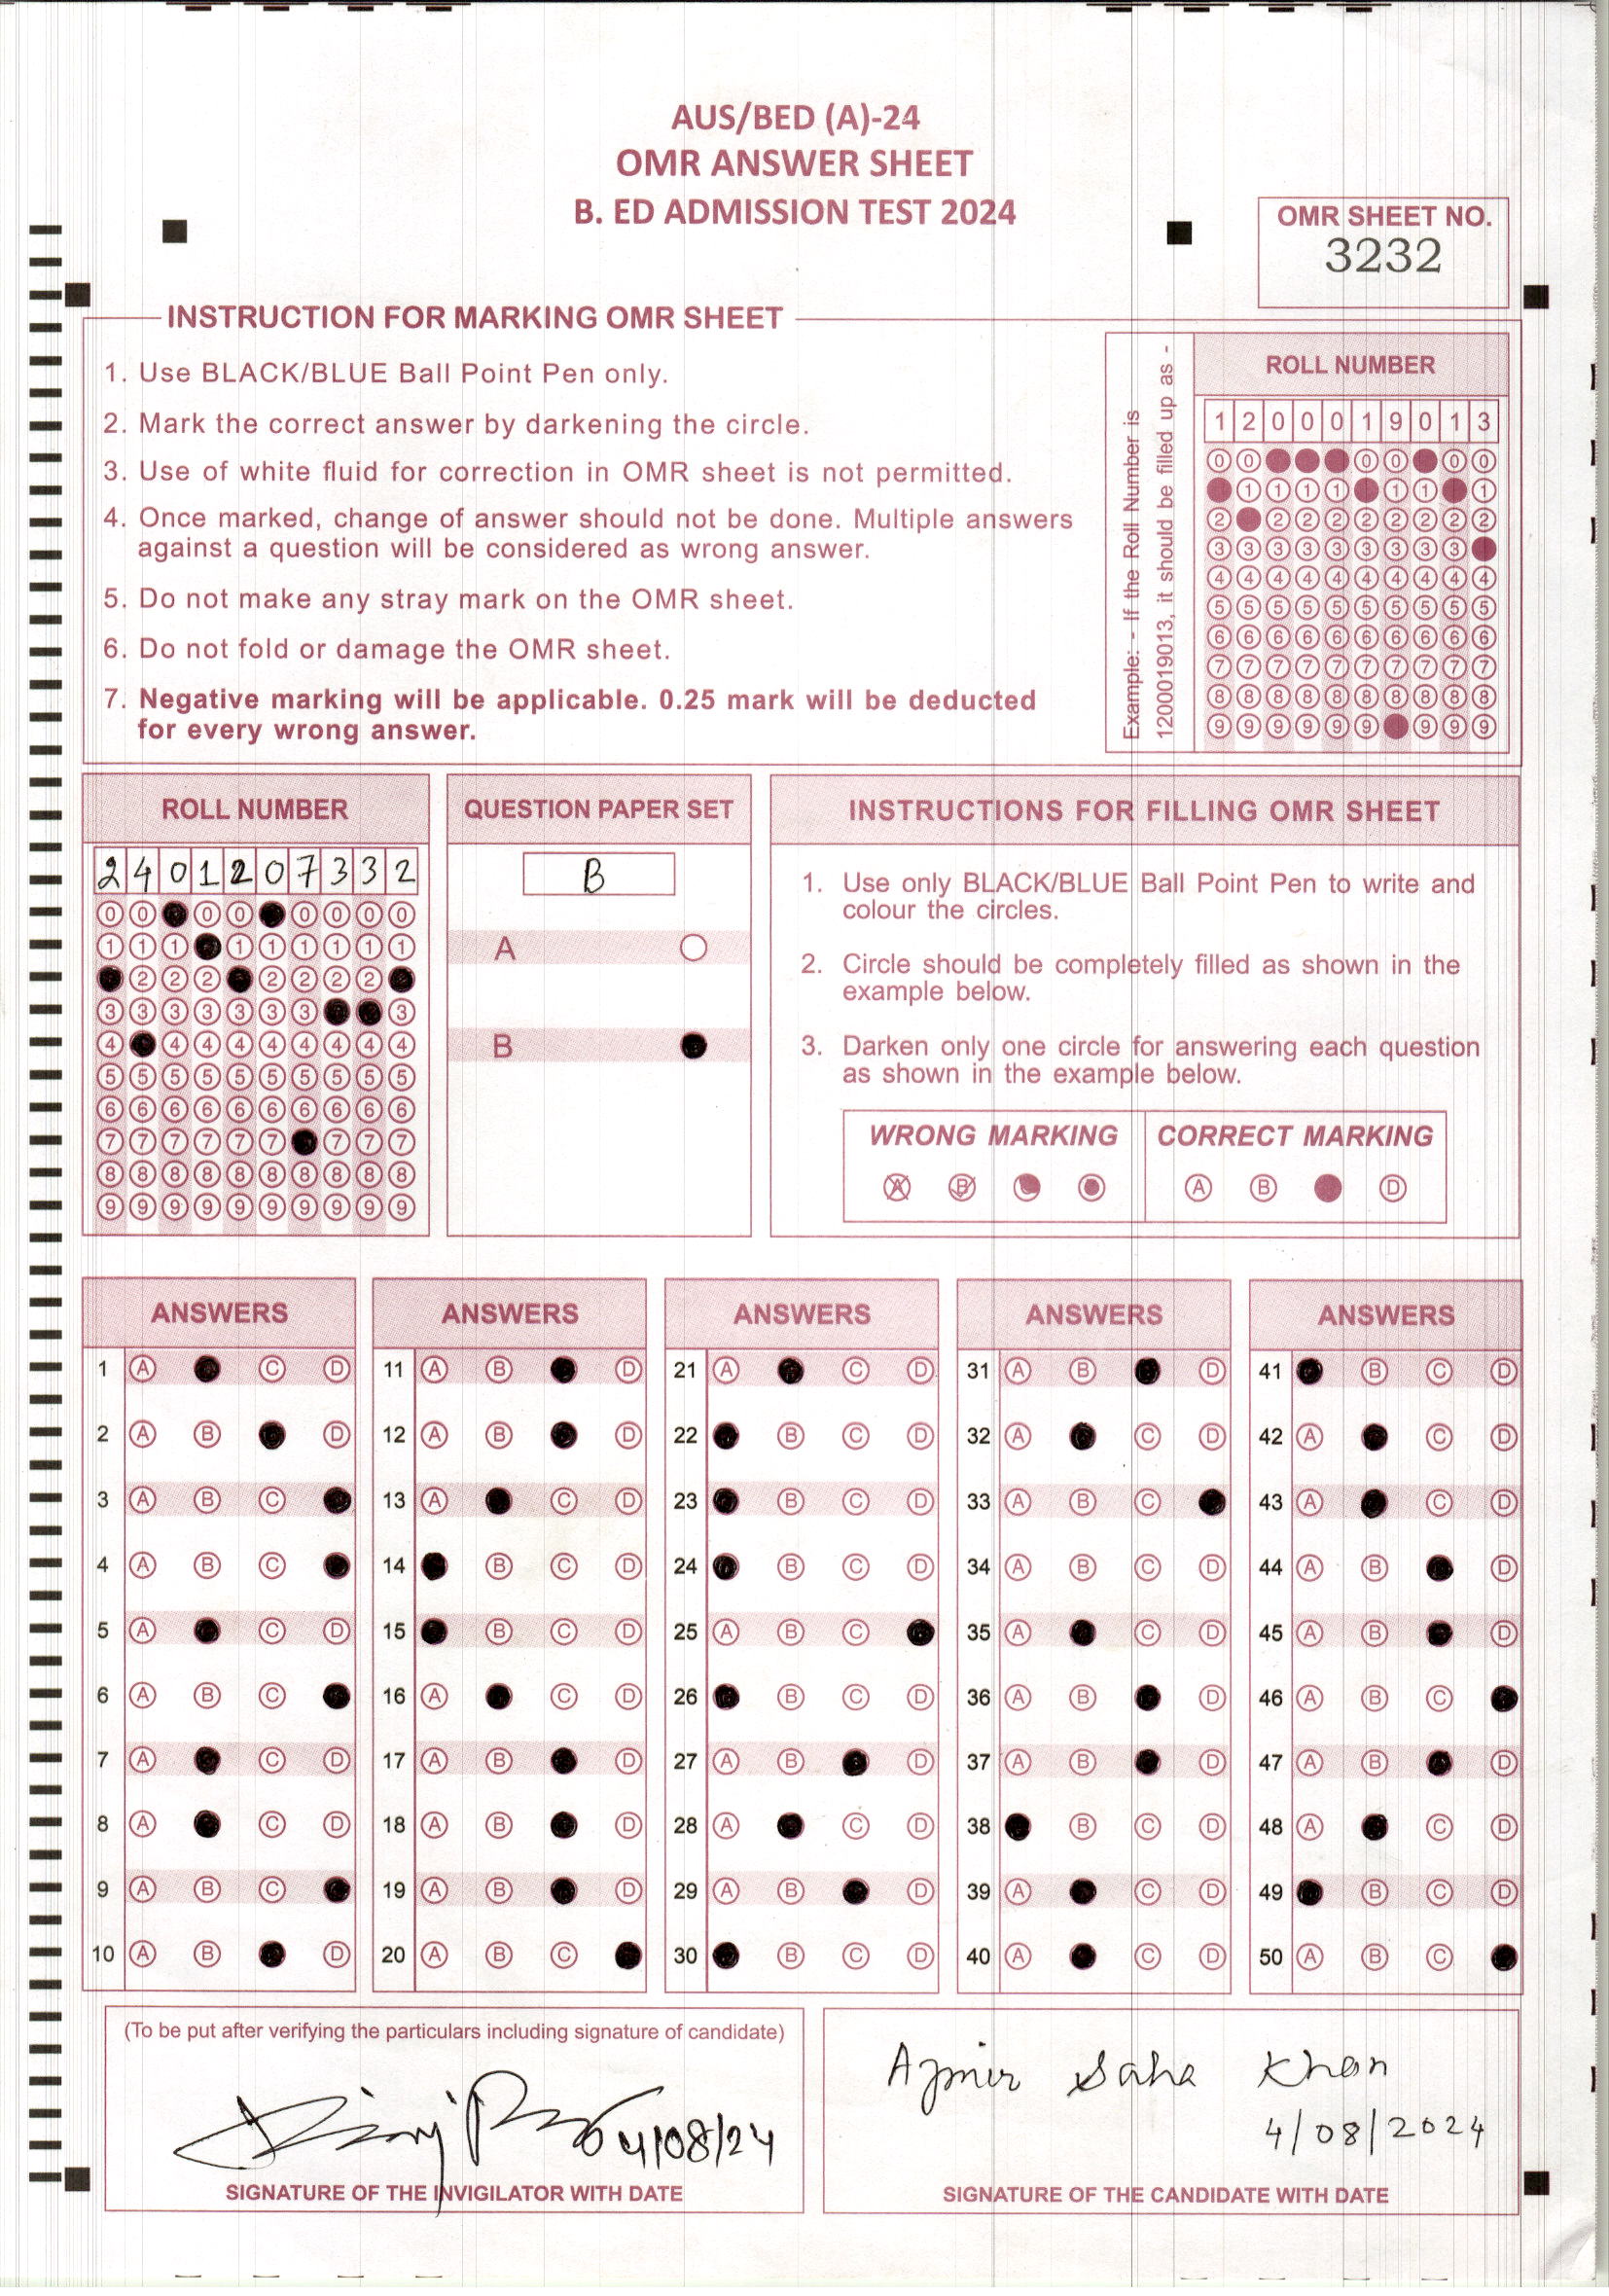 AUS/BED (A)-24
OMR ANSWER SHEET
B. ED ADMISSION TEST 2024
OMR SHEET NO.
3232
INSTRUCTION FOR MARKING OMR SHEET
1. Use BLACK/BLUE Ball Point Pen only.
2. Mark the correct answer by darkening the circle.
3. Use of white fluid for correction in OMR sheet is not permitted.
4. Once marked, change of answer should not be done. Multiple answers
against a question will be considered as wrong answer.
5. Do not make any stray mark on the OMR sheet.
6. Do not fold or damage the OMR sheet.
7. Negative marking will be applicable. 0.25 mark will be deducted
for every wrong answer.
Example: - If the Roll Number is
1200019013, it should be filled up as -
ROLL NUMBER
1 2 0 0 0 1 9 0 1 3
0 0 0 0 0 0
1 1 1 1 1 1 1
2 2 2 2 2 2 2 2 2
3 3 3 3 3 3 3 3 3
4 4 4 4 4 4 4 4 4 4
5 5 5 5 5 5 5 5 5 5
6 6 6 6 6 6 6 6 6 6
7 7 7 7 7 7 7 7 7 7
8 8 8 8 8 8 8 8 8 8
9 9 9 9 9 9 9 9 9
ROLL NUMBER
2 4 0 1 2 0 7 3 3 2
0 0 0 0 0 0 0 0
1 1 1 1 1 1 1 1 1
2 2 2 2 2 2 2
3 3 3 3 3 3 3 3
4 4 4 4 4 4 4 4 4
5 5 5 5 5 5 5 5 5 5
6 6 6 6 6 6 6 6 6 6
7 7 7 7 7 7 7 7 7
8 8 8 8 8 8 8 8 8 8
9 9 9 9 9 9 9 9 9 9
QUESTION PAPER SET
B
A
B
INSTRUCTIONS FOR FILLING OMR SHEET
1. Use only BLACK/BLUE Ball Point Pen to write and
colour the circles.
2. Circle should be completely filled as shown in the
example below.
3. Darken only one circle for answering each question
as shown in the example below.
WRONG MARKING
A B
CORRECT MARKING
A B D
ANSWERS
1 A C D
2 A B D
3 A B C
4 A B C
5 A C D
6 A B C
7 A C D
8 A C D
9 A B C
10 A B D
ANSWERS
11 A B D
12 A B D
13 A C D
14 B C D
15 B C D
16 A C D
17 A B D
18 A B D
19 A B D
20 A B C
ANSWERS
21 A C D
22 B C D
23 B C D
24 B C D
25 A B C
26 B C D
27 A B D
28 A C D
29 A B D
30 B C D
ANSWERS
31 A B D
32 A C D
33 A B C
34 A B C D
35 A C D
36 A B D
37 A B D
38 B C D
39 A C D
40 A C D
ANSWERS
41 B C D
42 A C D
43 A C D
44 A B D
45 A B D
46 A B C
47 A B D
48 A C D
49 B C D
50 A B C
(To be put after verifying the particulars including signature of candidate)
04/08/24
SIGNATURE OF THE INVIGILATOR WITH DATE
Ajmir Saha Khan
4/08/2024
SIGNATURE OF THE CANDIDATE WITH DATE